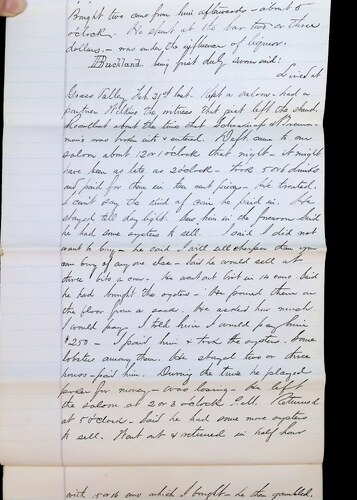 Bought two cans from him afterwards - about 5
o'clock. He spent at the bar two or three
dollars. - was under the influence of liquor.
Buckland being first duly sworn said:
Lived at
Grass Valley, Feb. 21st last. Kept a saloon. Had a
partner Wilkins the witness that just left the stand.
Recollect about the time that
was broken into & entered. Deft. came to our
saloon about 12 or 1 o'clock that night - it might
have been as late as 2 o'clock - took 5 or 6 drinks
and paid for them in ten cent pieces - He treated.
I can't say the kind of coin he paid in. He
stayed till day light. Saw him in the forenoon said
he had some oysters to sell. I said I did not
want to buy - he said I will sell cheaper than you
can buy of any one else - Said he would sell at
three bits a can. He went out brot in 14 cans. Said
he had bought the oysters - He poured them on
the floor from a sack. He asked how much
I would pay. I told him I would pay him
$2.50 - I paid him & took the oysters. Some
lobsters among them. He stayed two or three
hours - paid him. During the time he played
poker for money - was losing - He left
the saloon at 2 or 3 o'clock P.M. Returned
at 5 o'clock. Said he had some more oysters
to sell. Went out & returned in half hour
with 15 or 16 cans which I bought - he then gambled.